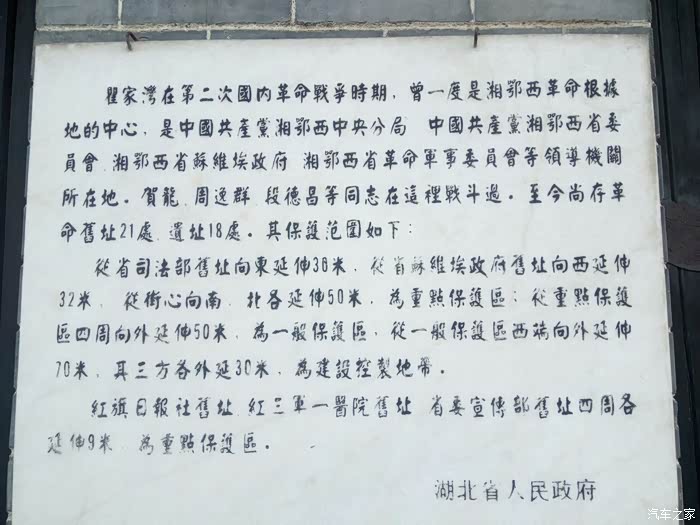 瞿家灣在第二次國内革命戰爭時期，曾一度是湘鄂西革命根據
地的中心，是中國共產黨湘鄂西中央分局 中國共產黨湘鄂西省委
員會 湘鄂西省蘇維埃政府 湘鄂西省革命軍事委員會等領導機關
所在地。賀龍 周逸群 段德昌等同志在這裡戰斗過。至今尚存革
命舊址21處 遺址18處。其保護范圍如下：
從省司法部舊址向東延伸36米，從省蘇維埃政府舊址向西延伸
32米 從街心向南 北各延伸50米，為重點保護區；從重點保護
區四周向外延伸50米，為一般保護區，從一般保護區西端向外延伸
70米，耳三方各外延30米，為建設控製地帶。
紅旗日報社舊址 紅三軍一醫院舊址 省委宣傳部舊址四周各
延伸9米 為重點保護區。
湖北省人民政府
汽车之家